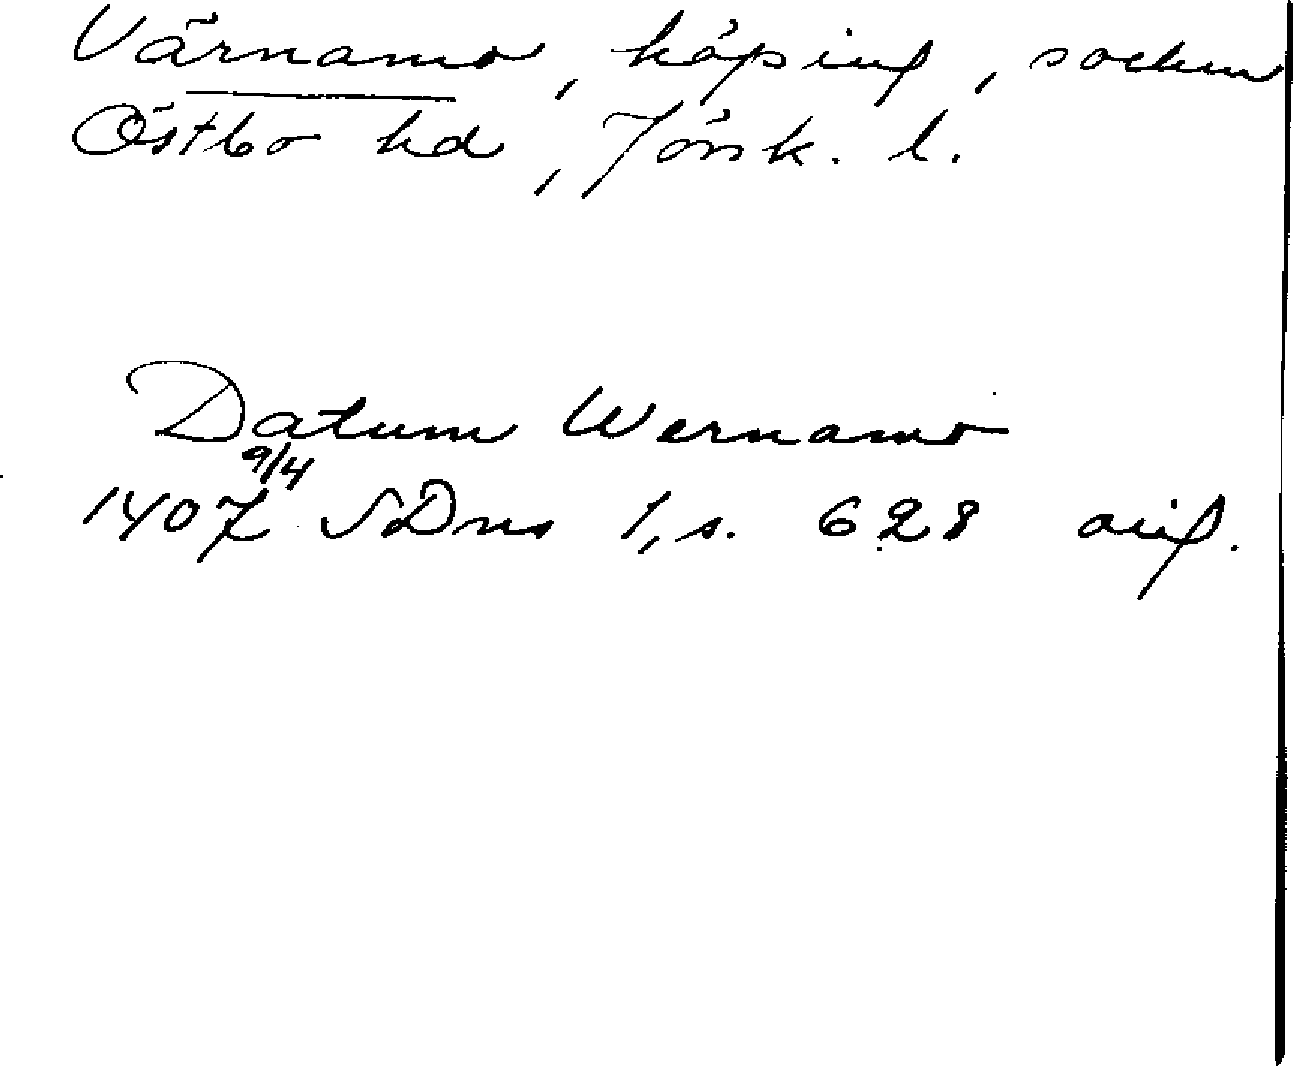 Värnamo, köping, socken
Östbo hd, Jönk. l.
Datum Wernamo
9/4
1407 SDns 1, s. 628 orig.